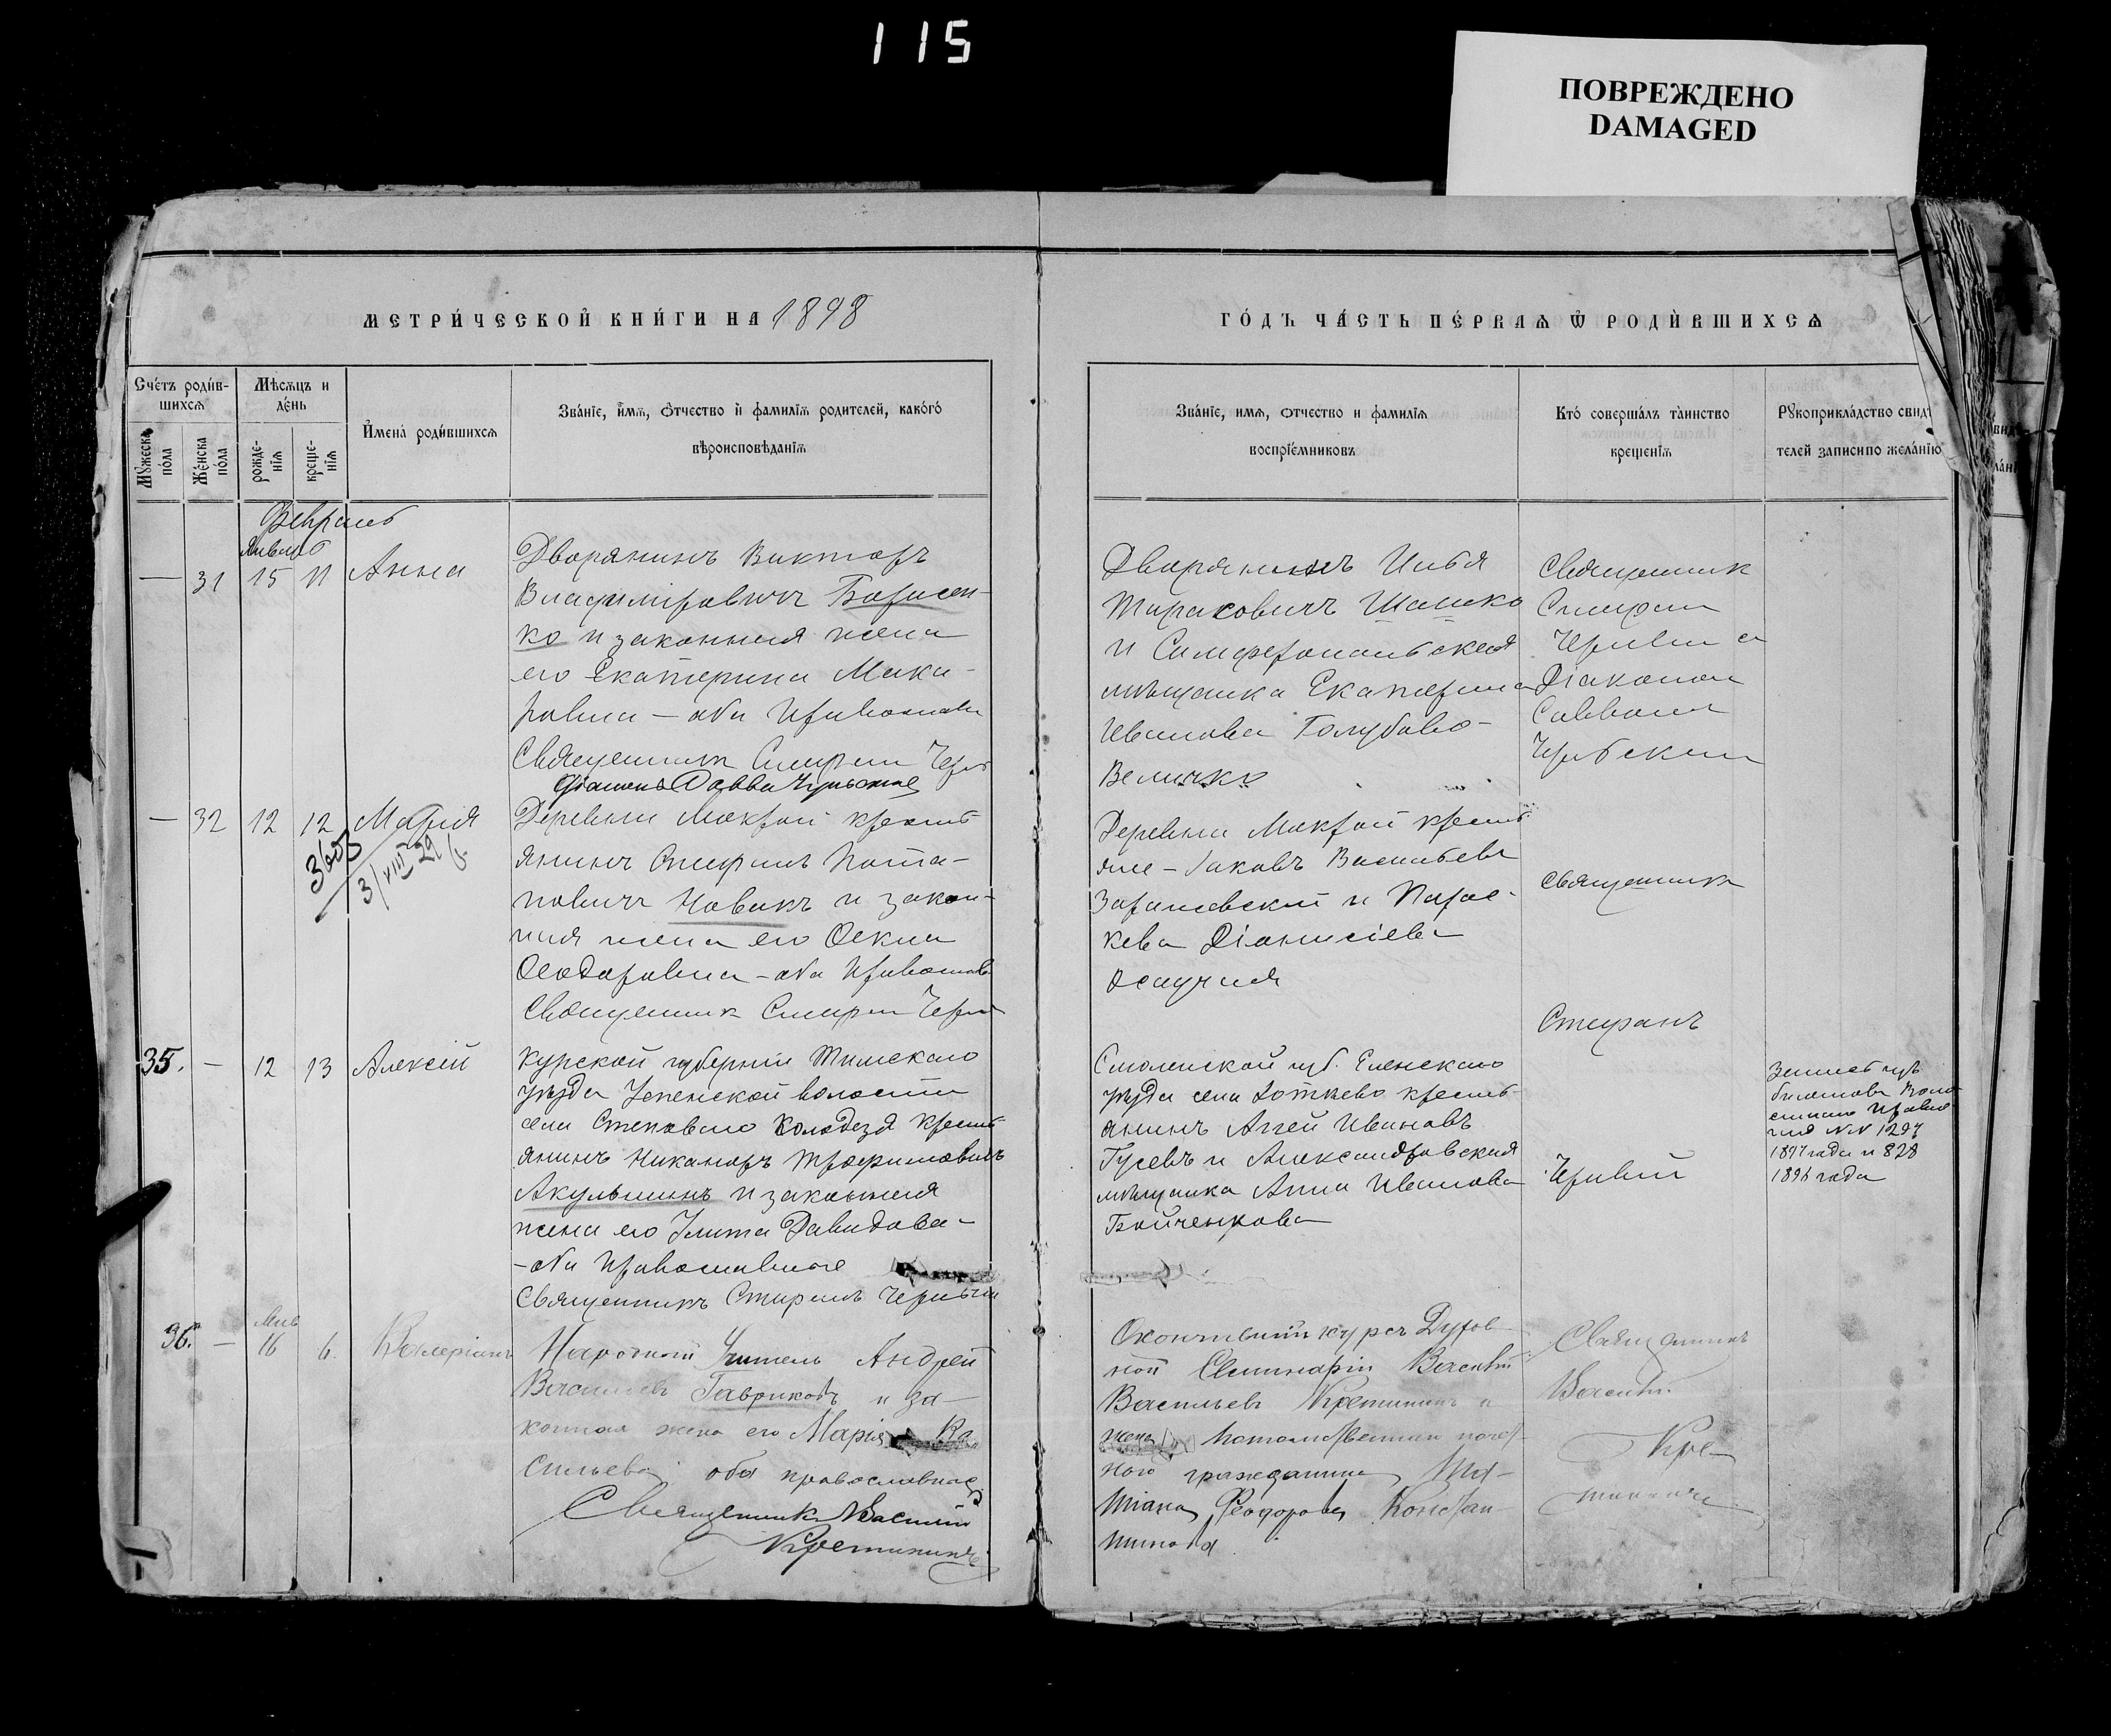 115
ПОВРЕЖДЕНО
DAMAGED
МЕТРИ́ЧЕСКОЙ КНИ́ГИ НА 1898
ГО́ДЪ ЧА́СТЬ ПЕ́РВАѦ Ѿ РОДИ́ВШИХСѦ
Сче́тъ роди́в-
шихсѧ
Мѣсѧцъ и
де́нь
Мꙋжеска
по́ла
Же́нска
по́ла
рожде-
нїѧ
креще-
нїѧ
И҆мена́ роди́вшихсѧ
Зва́нїе, и҆мѧ, ѻ҆тчество и҆ фамилїѧ родителей, како́гѡ
вѣроисповѣданїѧ
Зва́нїе, имѧ, ѻтчество и фамилїѧ
воспрїе́мниковъ
Кто̀ соверша́лъ та̀инство
креще́нїѧ
Рꙋкоприкла́дство свидѣ
телей записи по жела́нїю
Февраль
Январь
— 31 15 11 Анна
Дворянинъ Викторъ
Владиміровичъ Борисен-
ко и законная жена
его Екатерина Мака-
ровна — оба Православн
Священник Стефан Черн
Діаконъ Савва
Дворянинъ Илья
Тарасовичъ Шашко
и Симферопольская
мѣщанка Екатерина
Иванова Голубово-
Величко
Священник
Стефан
Черный с
Діаконом
Саввою
— 32 12 12 Марія
3/VIII 29
Деревни Мокрой кресть
янинъ Стефанъ Пота-
повичъ Новакъ и закон-
ная жена его Ѳекла
Ѳеодоровна — оба Православн
Священник Стефан Черны
Деревни Мокрой кресть
яне — Іаковъ Васильевъ
и Парас-
кева Діонисіева
Священник
Стефанъ
35. — 12 13 Алексій
Курской губерніи Тимскаго
уѣзда Успенской волости
села Колодезя кресть
янинъ Никаноръ Трофимовичъ
Акульшинъ и законная
жена его Улита Давидова —
— оба Православные
Священникъ Стефанъ Черный
Смоленской губ. Еленскаго
уѣзда села кресть-
янинъ Агей Ивановъ
Гусевъ и Александровская
мѣщанка Анна Иванова
Бойченкова
Черный
Воло
Правле
ния NN 1297
1897 года и 828
1896 года
36. — 16 6. Валеріанъ
Народный Учитель Андрей
Васильевъ Гавриковъ и за-
конная жена его Марія Ва
сильева, оба православные
Священник Василій
Кретининъ
Окончившій курсъ Духов
ной Семинаріи Василій
Васильевъ Кретининъ и
жена потомственнаи почет-
наго гражданина Та-
тіана Ѳеодорова Констан-
тинова
Священникъ
Василій
Кре-
тининъ